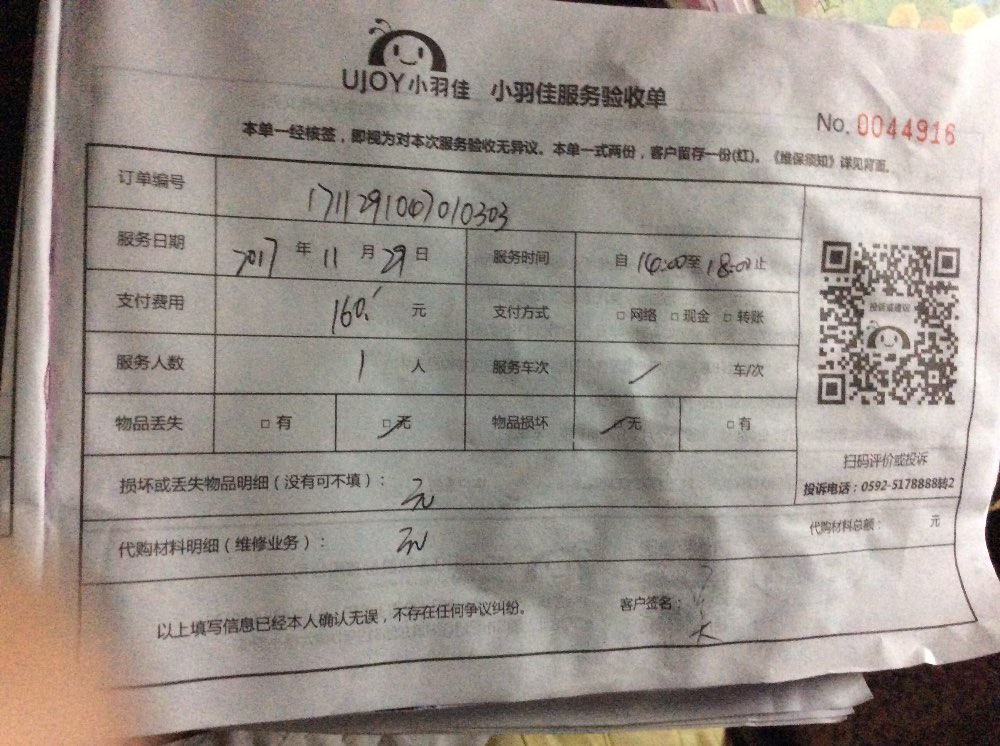 UJOY小羽佳 小羽佳服务验收单
No. 0044916
本单一经核签，即视为对本次服务验收无异议。本单一式两份，客户留存一份(红)。《维保须知》详见背面。
订单编号 1711291007010303
服务日期 2017 年 11 月 29 日 服务时间 自 16:00 至 18:00 止
支付费用 160. 元 支付方式 □ 网络 □ 现金 □ 转账
服务人数 1 人 服务车次 / 车/次
物品丢失 □ 有 □ 无 物品损坏 □ 无 □ 有
投诉或建议
扫码评价或投诉
投诉电话：0592-5178888转2
损坏或丢失物品明细（没有可不填）： 无
代购材料明细（维修业务）： 无
代购材料总额： 元
以上填写信息已经本人确认无误，不存在任何争议纠纷。 客户签名：